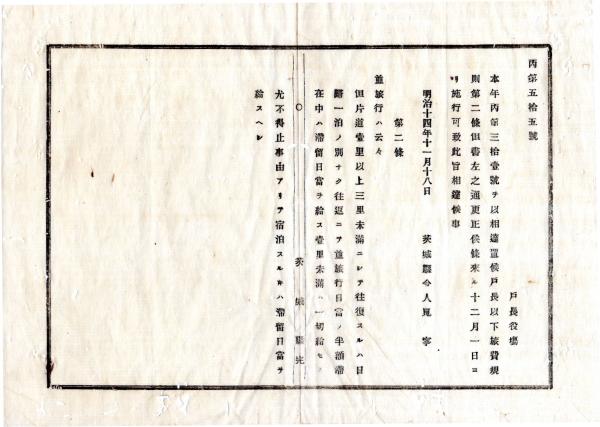 丙第五拾五號
戸長役場
本年丙第三拾壹號ヲ以相達置候戸長以下旅費規
則第二條但書左之通更正候條來ル十二月一日ヨ
リ施行可致此旨相達候事
明治十四年十一月十八日　茨城縣令人見寧
第二條
並旅行ハ云々
但片道壹里以上三里未滿ニシテ往復スルハ日
歸一泊ノ別ナク往返ニテ並旅行日當ノ半額滯
在中ハ滯留日當ヲ給ス壹里未滿ハ一切給セス
〇　茨城縣廳
尤不得止事由アリテ宿泊スルキハ滯留日當ヲ
給スヘシ